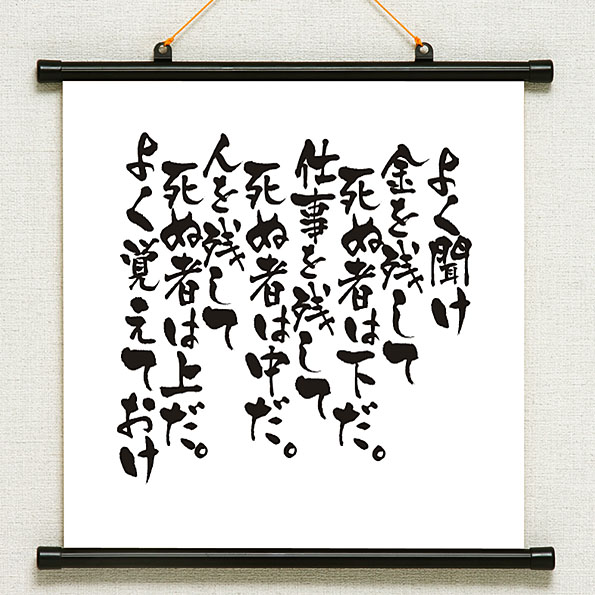 よく聞け
金を残して
死ぬ者は下だ。
仕事を残して
死ぬ者は中だ。
人を残して
死ぬ者は上だ。
よく覚えておけ